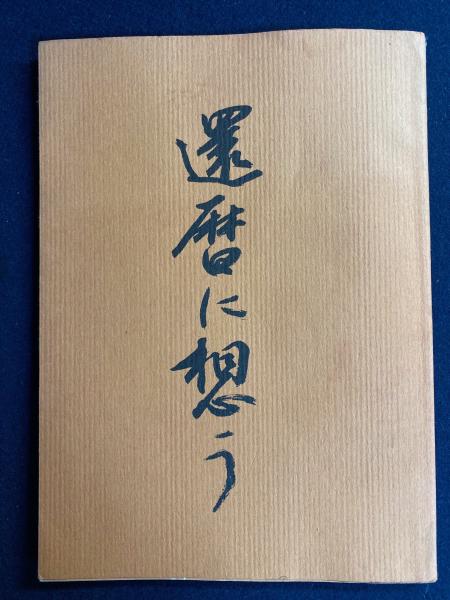 還暦に想う